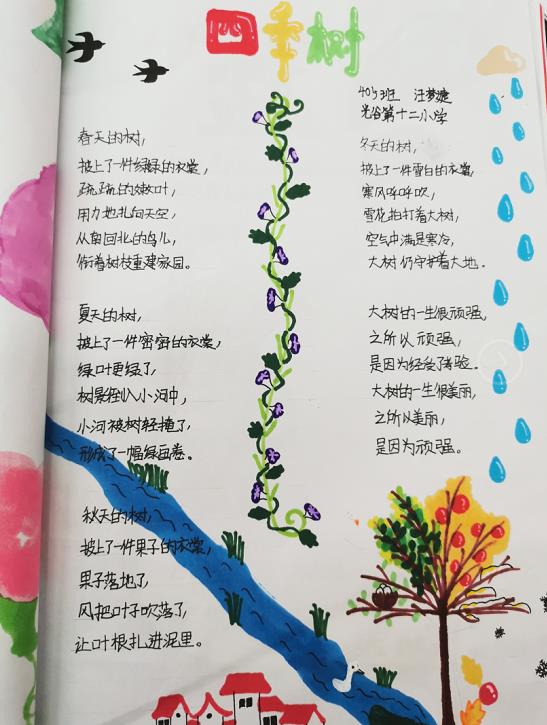 四季树
春天的树,
披上了一件绿绿的衣裳,
疏疏的嫩叶,
用力地扎向天空,
从南回北的鸟儿,
衔着树枝重建家园。
夏天的树,
披上了一件密密的衣裳,
绿叶更绿了,
树影倒入小河中,
小河被树轻掩了,
形成了一幅绿画卷。
秋天的树,
披上了一件果子的衣裳,
果子落地了,
风把叶子吹落了,
让叶根扎进泥里。
405班 汪梦婕
光谷第十二小学
冬天的树,
披上了一件雪白的衣裳,
寒风呼呼吹,
雪花拍打着大树,
空气中满是寒冷,
大树仍守护着大地。
大树的一生很顽强,
之所以顽强,
是因为经受了考验。
大树的一生很美丽,
之所以美丽,
是因为顽强。